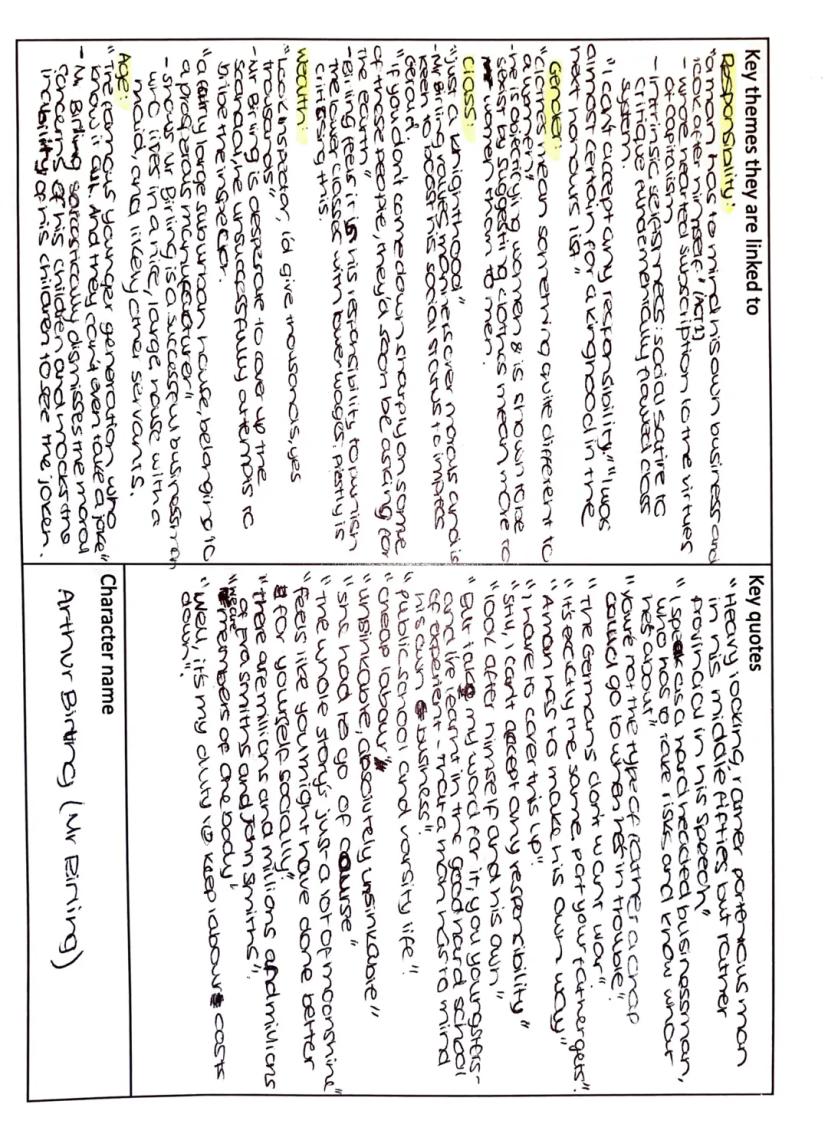 Key themes they are linked to
Responsibility:
"a man has to mind his own business and
look after himself" (Act 1)
- whole hearted subscription to the virtues
of capitalism
- intrinsic selfishness: social satire to
critique fundamentally flawed class
system.
"I can't accept any responsibility" "I was
almost certain for a knighthood in the
next honours list"
Gender:
"clothes mean something quite different to
a women"
- he is objectifying women & is shown to be
sexist by suggesting clothes mean more to
women than to men.
Class:
"just a knighthood"
- Mr Birling values manners over morals and is
keen to boost his social status to impress
Gerald.
"If you don't come down sharply on some
of these people, they'd soon be asking for
the earth"
- Birling feels it is his responsibility to punish
the lower classes with lower wages. Priestly is
critising this.
Wealth:
"Look inspector, I'd give thousands, yes
thousands"
- Mr Birling is desperate to cover up the
scandal, he unsuccessfully attempts to
bribe the inspector.
"a fairly large suburban house, belonging to
a prosperous manufacturer"
- shows Mr Birling is a successful businessman
who lives in a nice, large house with a
maid, and likely other servants.
Age:
"The famous younger generation who
know it all. And they can't even take a joke"
- Mr Birling sarcastically dismisses the moral
concerns of his children and mocks the
inability of his children to see the joken.
Key quotes
"Heavy looking, rather portentious man
in his middle fifties but rather
provincial in his speech"
"I speak as a hard headed businessman,
who has to take risks and know what
he's about"
"you're not the type of father a chap
could go to when he's in trouble"
"The Germans don't want war"
"It's exactly the same port your father gets".
"A man has to make his own way"
"I have to cover this up".
"Still, I can't accept any responsibility"
"look after himself and his own"
"But take my word for it, you youngsters-
and I've learnt in the good hard school
of experient - that a man has to mind
his own business".
"public school and varsity life"
"cheap labour"
"unsinkable, absolutely unsinkable"
"She had to go of course"
"The whole story's just a lot of moonshine"
"feels like you might have done better
for yourself socially"
"there are millions and millions and millions
of Eva smiths and John Smiths".
"We are members of one body"
"Well, it's my duty to keep labour costs
down".
Character name
Arthur Birling (Mr Birling)